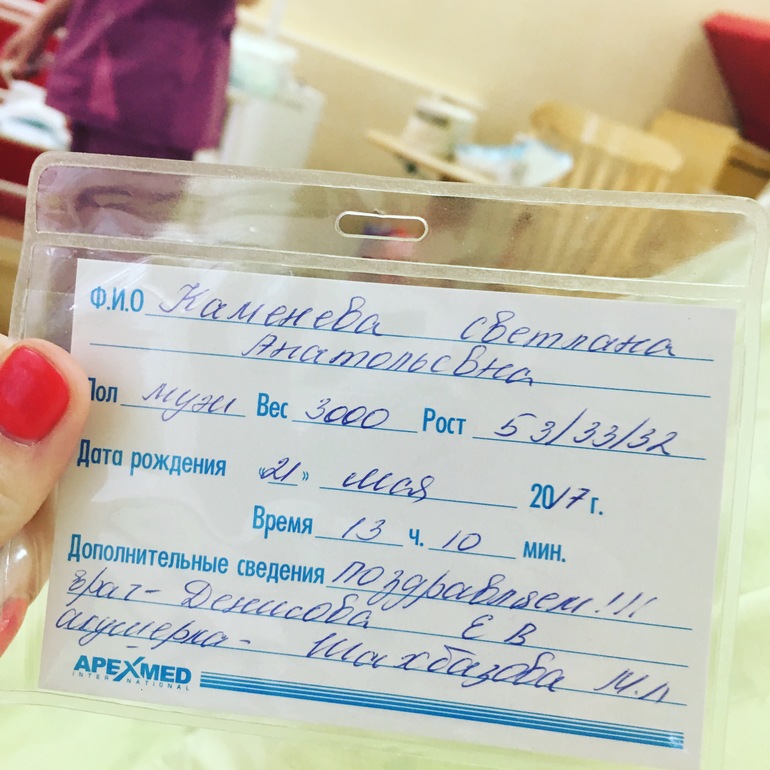 Ф.И.О Каменева светлана
Анатольевна
Пол муж Вес 3000 Рост 53/33/32
Дата рождения «21» мая 2017 г.
Время 13 ч. 10 мин.
Дополнительные сведения поздравляем!!!
врач - Денисова Е В
акушерка - Шахбазова М.А
APEXMED
INTERNATIONAL